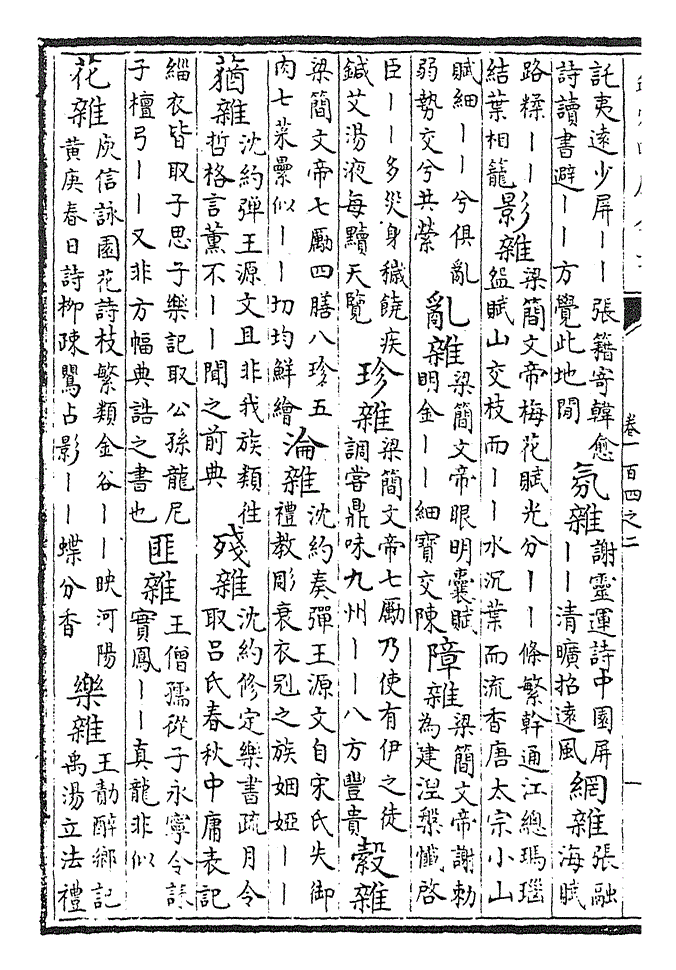 卷一百四之二
託夷遠少屏丨丨張籍寄韓愈
詩讀書避丨丨方覺此地閒
氛雜
謝靈運詩中園屏
丨丨清曠招遠風
網雜
張融
海賦
路糅丨丨
結葉相籠
影雜
梁簡文帝梅花賦光分丨丨條繁幹通江總瑪瑙
盌賦山交枝而丨丨水沉葉而流香唐太宗小山
賦細丨丨兮俱亂
弱勢交兮共縈
亂雜
梁簡文帝眼明囊賦
明金丨丨細寶交陳
障雜
梁簡文帝謝勅
為建涅槃懺啓
臣丨丨多災身穢饒疾
鍼艾湯液每黷天覽
珍雜
梁簡文帝七勵乃使有伊之徒
調嘗鼎味九州丨丨八方豐貴
縠雜
梁簡文帝七勵四膳八珍五
肉七菜㬪似丨丨切均鮮繪
淪雜
沈約奏彈王源文自宋氏失御
禮教彫衰衣冠之族姻婭丨丨
蕕雜
沈約彈王源文且非我族類往
哲格言薰不丨丨聞之前典
殘雜
沈約修定樂書疏月令
取呂氏春秋中庸表記
緇衣皆取子思子樂記取公孫龍尼
子檀弓丨丨又非方幅典誥之書也
匪雜
王僧孺從子永寧令誄
寳鳳丨丨真龍非似
花雜
庾信詠園花詩枝繁類金谷丨丨映河陽
黃庚春日詩柳疎鶯占影丨丨蝶分香
樂雜
王勣醉鄉記
禹湯立法禮